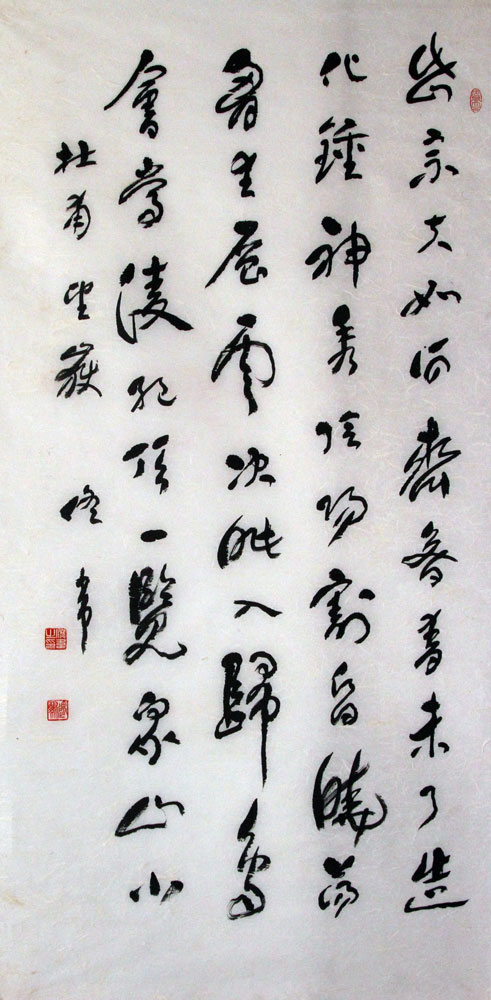 岱宗夫如何齊魯青未了造
化鍾神秀陰陽割昏曉蕩
胷生層雲決眥入歸鳥
會當淩絕頂一覽眾山小
杜甫望嶽 佟韋